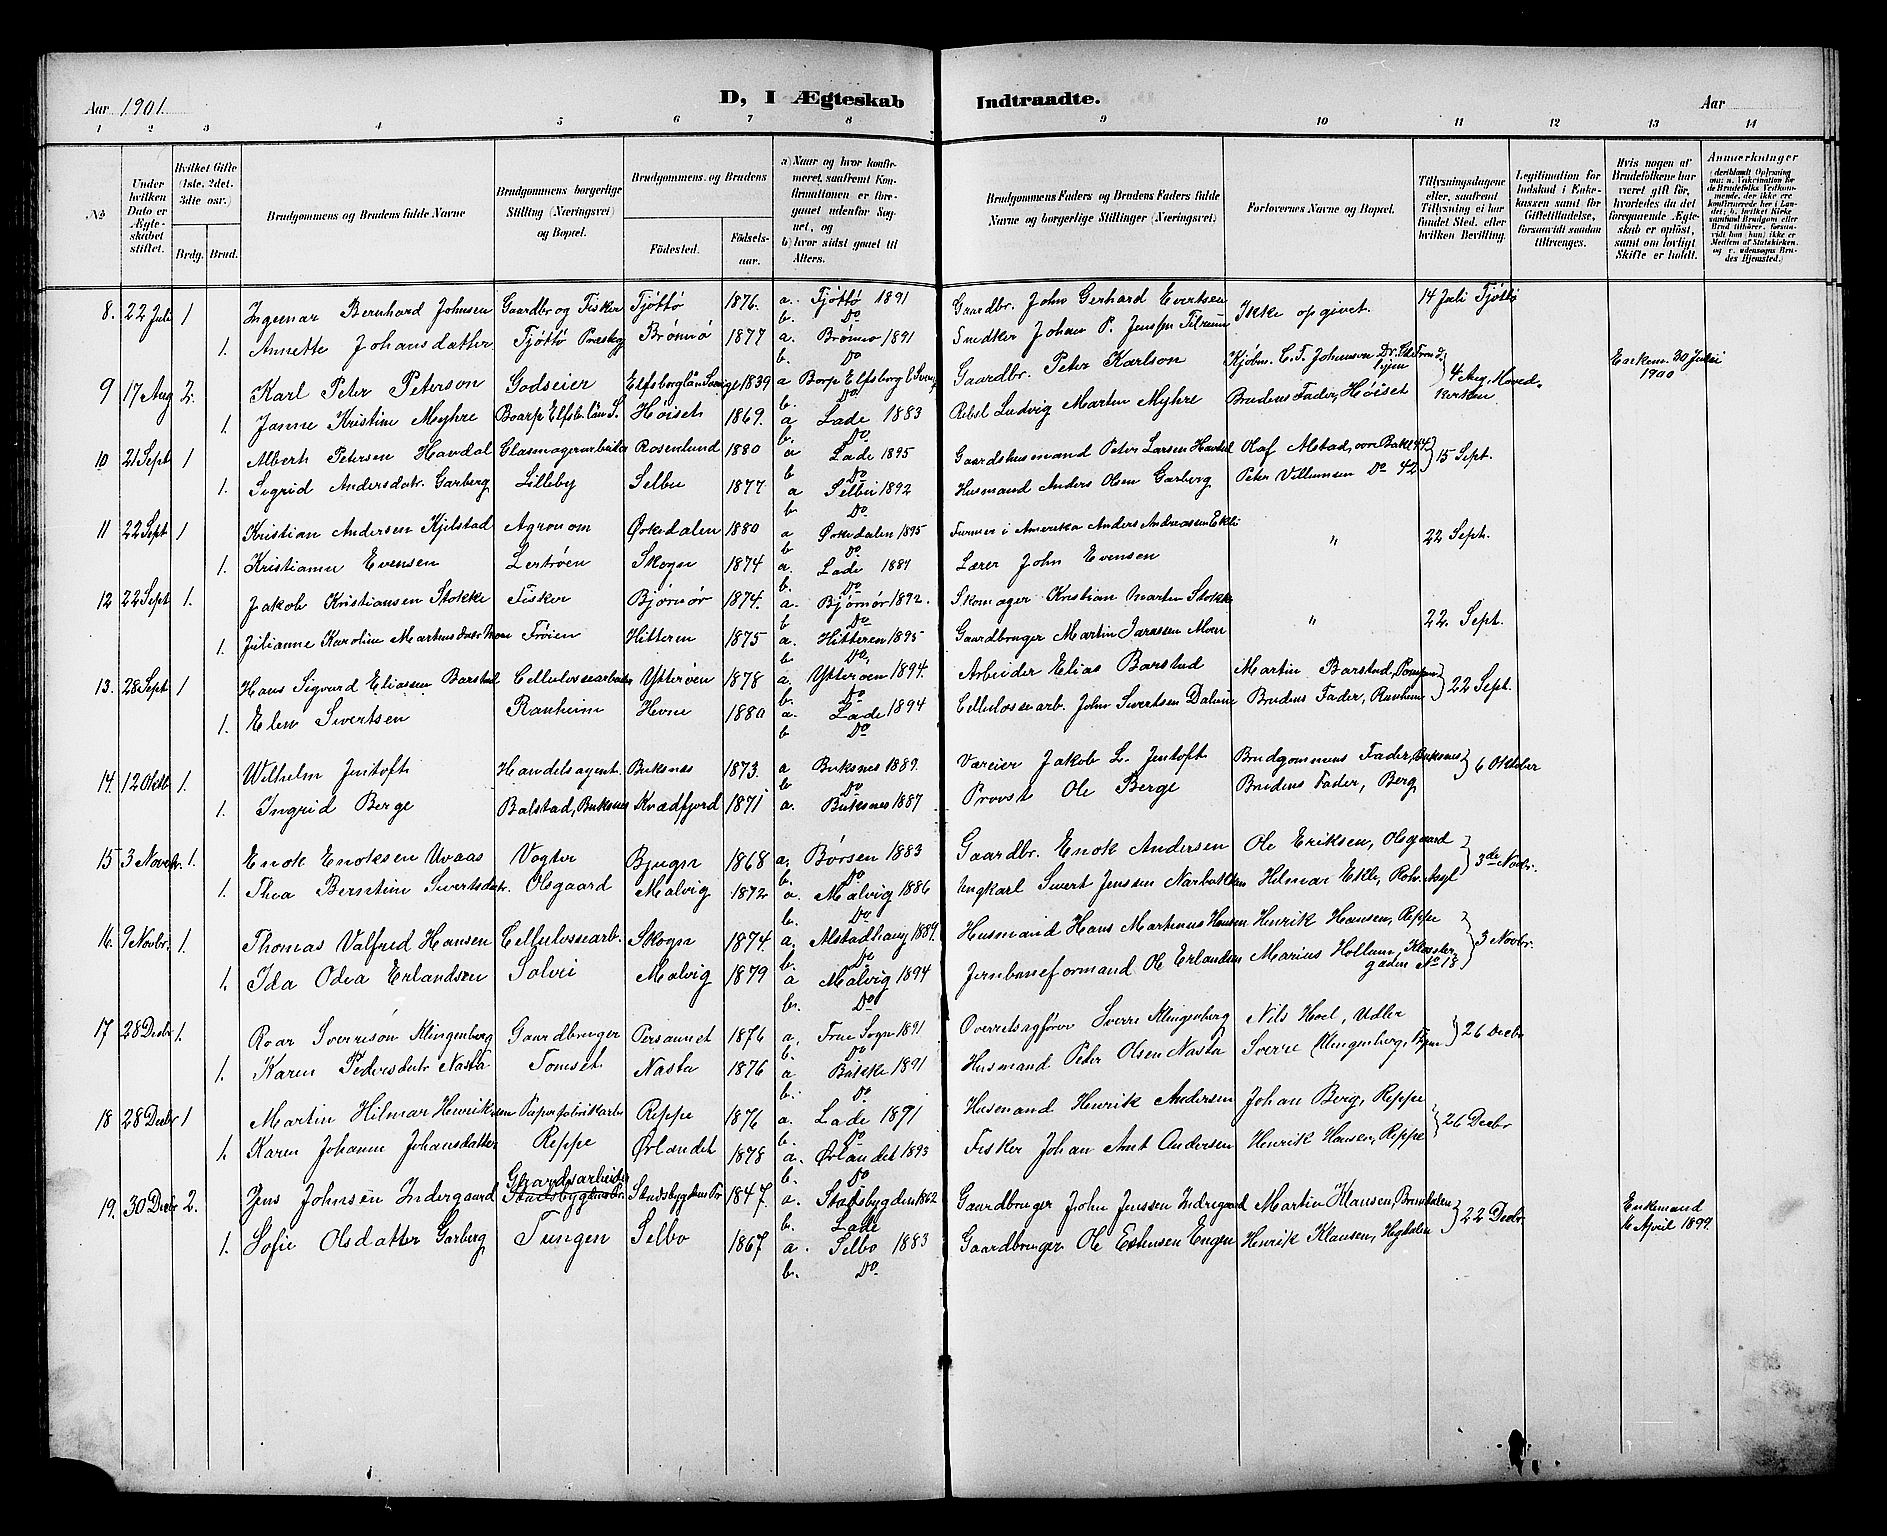 Aar 1901. D, I Ægteskab Indtraadte. Aar
1 2 3 4 5 6 7 8 9 10 11 12 13 14
No
Under hvilken Dato er Ægteskabet stiftet.
Hvilket Gifte (1ste, 2det, 3die osv.)
Brdg. Brud.
Brudgommens og Brudens fulde Navne
Brudgommens borgerlige Stilling (Næringsvei) og Bopæl.
Brudgommens og Brudens
Fødested. Fødselsaar.
a) Naar og hvor konfirmeret, saafremt Konfirmationen er foregaaet udenfor Sognet, og
b) hvor sidst gaaet til Alters.
Brudgommens Faders og Brudens Faders fulde Navne og borgerlige Stillinger (Næringsvei)
Forlovernes Navne og Bopæl.
Tillysningsdagene eller, saafremt Tillysning ei har fundet Sted, efter hvilken Bevilling.
Legitimation for Indskud i Enkekassen samt for Giftetilladelse, forsaavidt saadan tiltrænges.
Hvis nogen af Brudefolkene har været gift før, hvorledes da det foregaaende Ægteskab er opløst, samt om lovligt Skifte er holdt.
Anmærkninger
8. 22 Juli 1 Ingemar Bernhard Johnsen Gaardbr og Fisker Tjöttö 1876. a. Tjöttö 1891 Gaardbr. John Gerhard Evertsen Ikke opgivet. 14 Juli Tjöttö
b. Do
1. Annette Johansdatter Tjöttö Præstegj Brönnö 1877 a. Brönnö 1891 Snedker Johan P. Jensen
b. Do
9 17 Aug 2. Karl Peter Peterson Godseier Elfsborglän Sverige 1839 a Borp Elfsborg l Sverig Gaardbr. Peter Karlson Kjöbm. C. F. Johnsen 4 Aug. Hovedkirken Enkem. 30 Juni 1900
b. Do
1. Janne Kristine Myhre Boarp Elfsb. län S. Höiset 1869. a Lade 1883 Rebsl Ludvig Martin Myhre Brudens Fader, Höiset
b. Do
10 21 Sept 1 Albert Petersen Havdal Glasmagerarbeider Rosenlund 1880 a Lade 1895 Gaardshusmand Peter Larsen Havdal Olaf Alstad, övre Bakl 44 15 Sept.
b Do
1. Sigrid Andersdatr. Garberg Lilleby Selbu 1877 a Selbu 1892 Husmand Anders Olsen Garberg Peter Villumsen Do 42
b Do
11 22 Sept 1 Kristian Andersen Kjelstad Agronom Örkedalen 1880 a Örkedalen 1895 Farmer i Amerika Anders Andreassen Ekli " 22 Sept.
b Do
1. Kristiane Evensen Lertröen Skogn 1874 a. Lade 1889 Lærer John Evensen
b. Do
12 22 Sept 1. Jakob Kristiansen Stokke Fisker Björnör 1874. a. Björnör 1892. Skomager Kristian Martin Stokke " 22. Sept.
b Do
1. Julianne Karoline Martinusdatr Moen Fröien Hitteren 1875 a. Hitteren 1895 Gaardbruger Martin Moen
b. Do,
13. 28 Sept 1 Hans Sigvard Eliassen Barstad Cellulossearbeider Ytteröen 1878 a. Ytteröen 1894. Arbeider Elias Barstad Martin Barstad, 22 Sept.
b. Do
1. Elen Sivertsen Ranheim Hevne 1880 a. Lade 1894 Cellulossearb. John Sivertsen Dalum Brudens Fader, Ranheim
b Do
14. 12 Oktb 1. Wilhelm Jentoft Handelsagent. Buksnæs 1873. a Buksnes 1889. Væreier Jakob L. Jentoft Brudgommens Fader, Buksnes 6 Oktober
b Do
1. Ingrid Berge Balstad, Buksnes Kvædfjord 1871 a. Buksnes 1887 Provst Ole Berge Brudens Fader, Berg
15 3 Novbr. 1. Enok Enoksen Uvaas Vogter Bjugn 1868 a. Börsen 1883 Gaardbr. Enok Andersen Ole Eriksen, Olsgaard 3de Novbr.
b. Do
1. Thea Berntine Sivertsdatr. Olsgaard Malvig 1872 a. Malvig 1886 Ungkarl Sivert Jenssen Hilmar Ekle, Rotv. Asyl
b. Do
16. 9 Novbr. 1. Thomas Valfred Hansen Cellulossearb. Skogn 1874. a. Alstadhaug 1889. Husmand Hans Martinus Hansen Henrik Hansen, Reppe 3 Novbr.
b. Do
1. Ida Odea Erlandsen Solvei Malvig 1879 a Malvig 1894 Jernbaneformand Ole Erlandsen Marius Hollum, Klostergaden No 18
b. Do
17 28 Decbr 1. Roar Sverresön Klingenberg Gaardbruger Persaunet 1876 a. Frue Sogn 1891 Overretssagförer Sverre Klingenberg Nils Hoel, Udler 26 Decbr
b. Do
1. Karen Pedersdatr Nasta Tomset Nasta 1876 a Bakke 1891 Husmand Peter Olsen Nasta Sverre Klingenberg,
b. Do
18 28 Decbr 1 Martin Hilmar Henriksen Papirfabrikarb. Reppe 1876 a. Lade 1891 Husmand Henrik Andersen Johan Berg, Reppe 26 Decbr
b. Do
1. Karen Johanne Johansdatter Reppe Örlandet 1878 a. Örlandet 1893 Fisker Johan Arnt Andersen Henrik Hansen, Reppe
b. Do
19. 30 Decbr 2. Jens Johnsen Indergaard Gaardsarbeider Stadsbygdens Pr. Stadsbygdens Pr 1847. a. Stadsbygden 1862 Gaardbruger John Jenssen Indregaard Martin Klausen, 22 Decbr. Enkemand April 1899
b. Lade
1. Sofie Olsdatter Garberg Tungen Selbo 1867 a. Selbo 1883 Gaardbruger Ole Estensen Engen Henrik Klausen,
b. Do